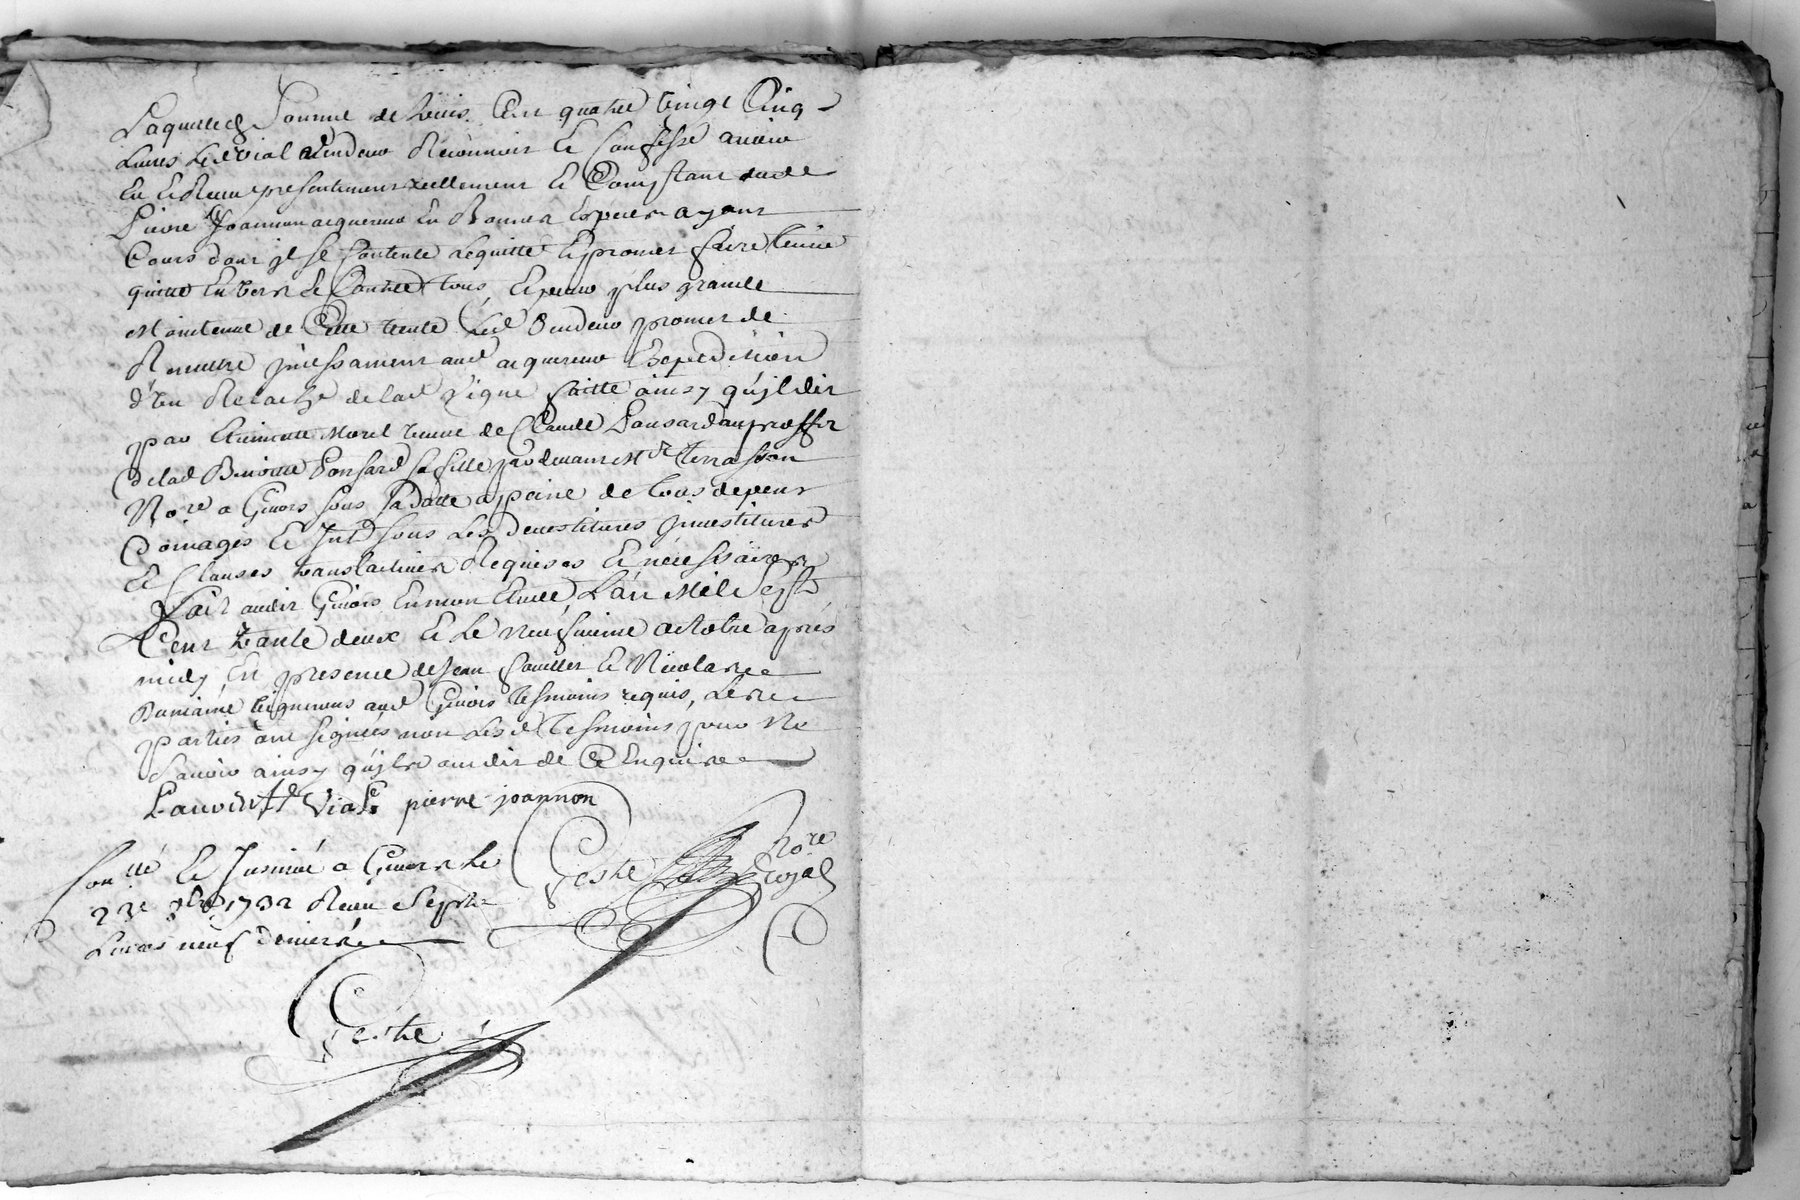 Laquelle Somme de Cent quatre vingt Cinq
Livres Led Vial Vendeur Reconnoit Et Confesse avoir
Eu Et Receu presentement reellement Et Comptant dud
Pierre Joannon acquereur En Bonnes Especes ayant
Cours dont jl Se Contente Lequitte Et promet faire tenir
quitte Envers Et Contre tous, Et pour plus grande
Maintenue de Cette Vente Led Vendeur promet de
Remettre jncessament aud acquereur Expedition
d'un Relache delad Vigne faitte ainsy qu'jl dit
par Morel veuve de Claude Ponsard au proffit
delad Benoitte Ponsard sa fille pardevant Mr Terrasson
Nore a Givors Sous Sa Datte a peine de tous depens
Domages Et Int Sous Les Devestitures jnvestitures
Et Clauses translatives Requises Et necessaires
Fait audit Givors En mon Etude L'an Mil Sept
Cent trante deux Et Le Neufvieme octobre apres
midy En presence de Jean Et Nicolas
Damiane vignerons aud Givors tesmoins requis, Les
parties ont signées non Lesd tesmoins pour Ne
Scavoir ainsy qu'jls ont dit de Ce Enquis
Vial pierre joannon
Conllé Et Jnsinué a Givors Le
23e 8bre 1732 Receu Sept
Livres neuf deniers
Geste Nore
Royal
Geste